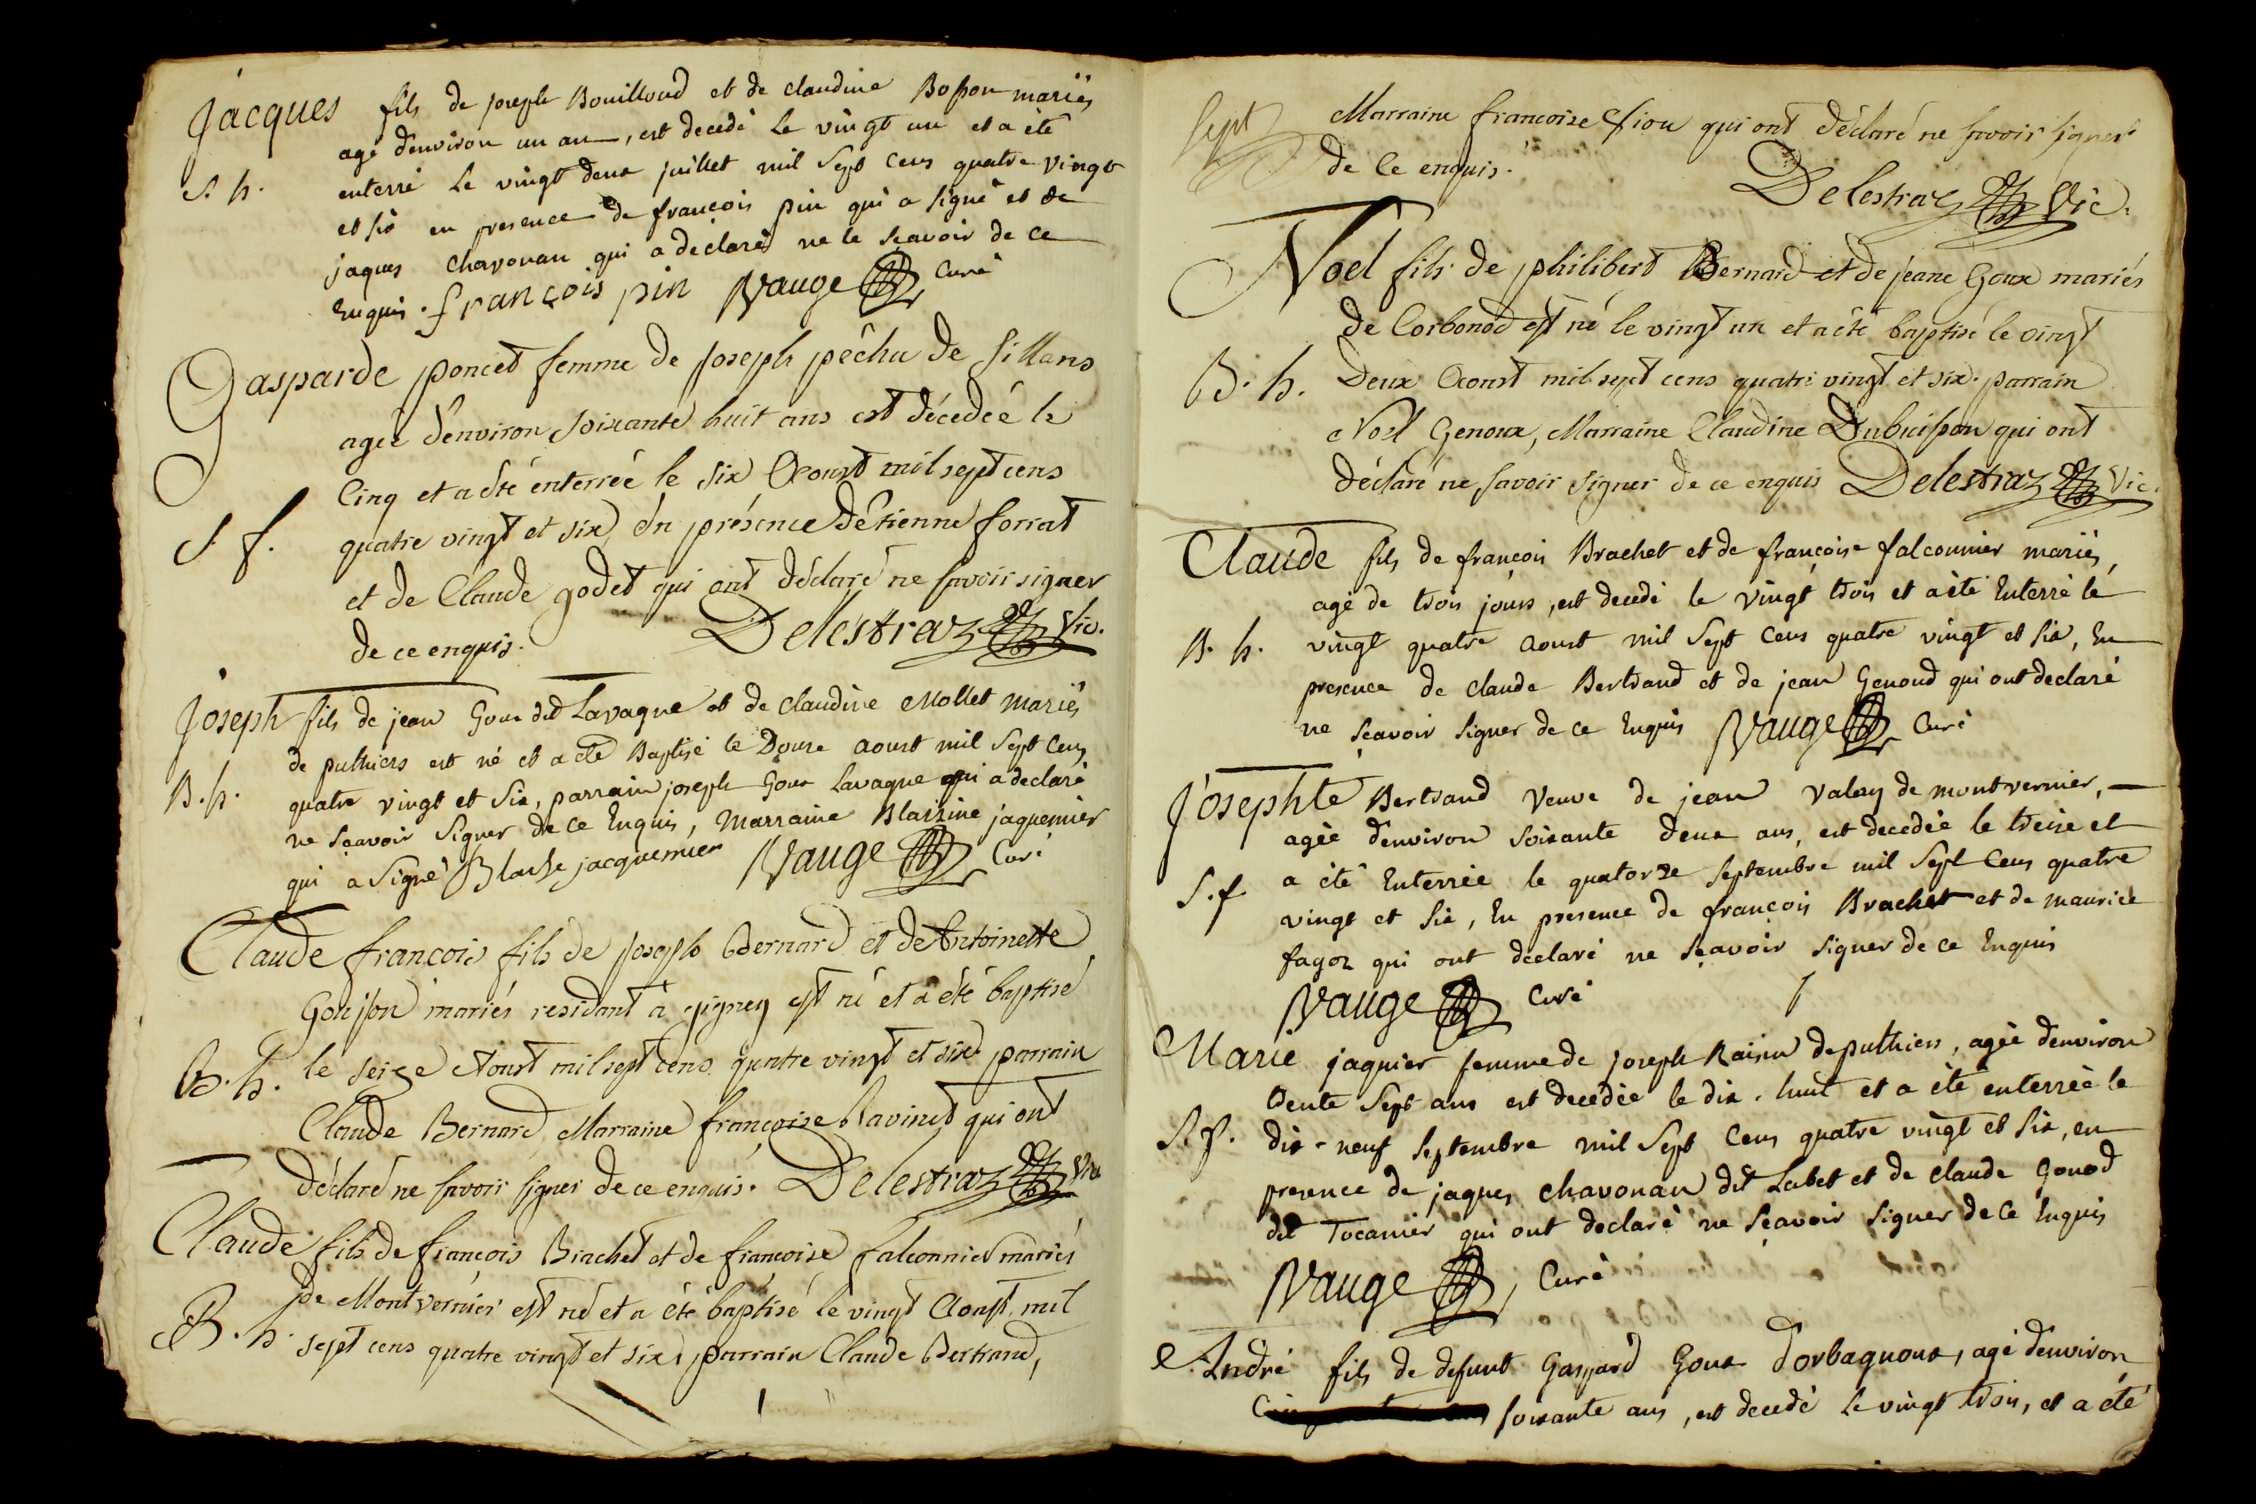 Jacques fils de joseph Bouilloud et de claudine Bosson mariés
agé d'environ un an, est decedé le vingt un et a été
S. h. enterré le vingt deux juillet mil sept cens quatre vingt
et six en presence de françois pin qui a signé et de
jaques chavonan qui a declaré ne le sçavoir de ce
Enquis. françois pin Vauge Curé
Gasparde poncet femme de joseph pêchu de sillans
agée d'environ soixante huit ans est décedée le
Cinq et a été enterrée le six Aoust mil sept cens
S. f. quatre vingt et six en présence d'Etienne forrat
et de Claude godet qui ont déclaré ne savoir signer
de ce enquis. Delestraz Vic.
Joseph fils de jean Goux dit Lavagne et de claudine Mollet mariés
de puthiers est né et a été Baptisé le Douze aoust mil sept cens
B. h. quatre vingt et six, parrain joseph Goux Lavagne qui a declaré
ne sçavoir signer de ce Enquis, marraine Blaizine jaquemier
qui a signé Blaize jacquemier Vauge Curé
Claude françois fils de joseph Bernard et de Antoinette
Goujon mariés residant à gigney est né et a été baptisé
B. h. le seize Aoust mil sept cens quatre vingt et six parrain
Claude Bernard, Marraine françoise Ravinet qui ont
déclaré ne savoir signer de ce enquis. Delestraz Vic
Claude fils de francois Brachet et de francoise falconnier mariés
de Montvernier est né et a été baptisé le vingt Aoust mil
B. h. sept cens quatre vingt et six, parrain Claude Bertrand,
sept Marraine francoise qui ont déclaré ne savoir signer
de ce enquis. Delestraz Vic.
Noel fils de philibert Bernard et de jeane Goux mariés
de Corbonod est né le vingt un et a été baptisé le vingt
B. h. Deux Aoust mil sept cens quatre vingt et six. parrain
Noel Genoux, Marraine Claudine Dubuisson qui ont
déclaré ne savoir signer de ce enquis Delestraz Vic.
Claude fils de françois Brachet et de françoise falconnier mariés,
agé de trois jours, est decedé le vingt trois et a été Enterré le
B. h. vingt quatre aoust mil sept cens quatre vingt et six, En
presence de claude Bertrand et de jean Genoud qui ont declaré
ne sçavoir signer de ce Enquis Vauge Curé
Josephte Bertrand veuve de jean valay de montvernier,
agée d'environ soixante deux ans, est decedée le treize et
S. f a été Enterrée le quatorze septembre mil sept cens quatre
vingt et six, En presence de françois Brachet et de maurice
fagoz qui ont declaré ne sçavoir signer de ce Enquis
Vauge Curé
Marie jaquier femme de joseph Raisin de puthiers, agée d'environ
trente sept ans est decedée le dix-huit et a été enterrée le
S. f. dix-neuf septembre mil sept cens quatre vingt et six, en
presence de jaques chavonan dit Labet et de claude Gonod
dit Tocanier qui ont declaré ne sçavoir signer de ce Enquis
Vauge Curé
André fils de defunt Gaspard Goux d'orbagnoux, agé d'environ
soixante ans, est decedé le vingt trois, et a été